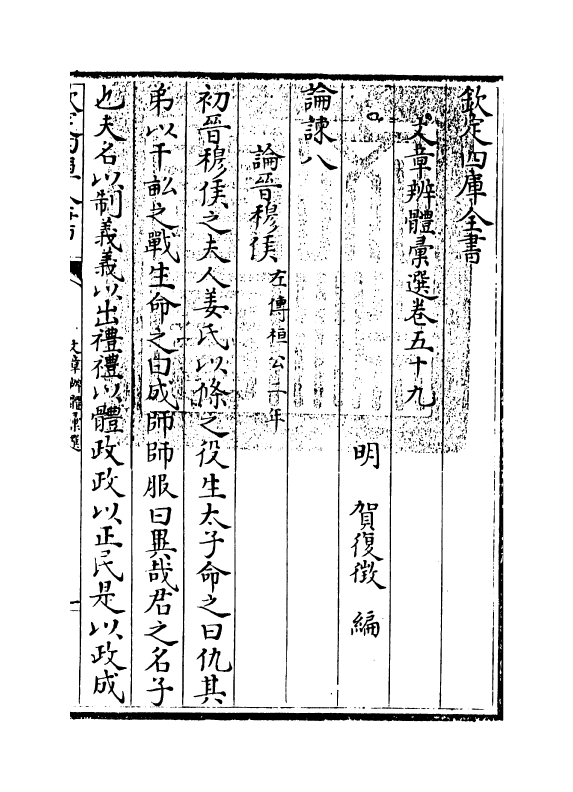 欽定四庫全書
文章辨體彚選卷五十九
明 賀復徵 編
論諫八
論晉穆侯 左傳桓公二年
初晉穆侯之夫人姜氏以條之役生太子命之曰仇其
弟以千畝之戰生命之曰成師師服曰異哉君之名子
也夫名以制義義以出禮禮以體政政以正民是以政成